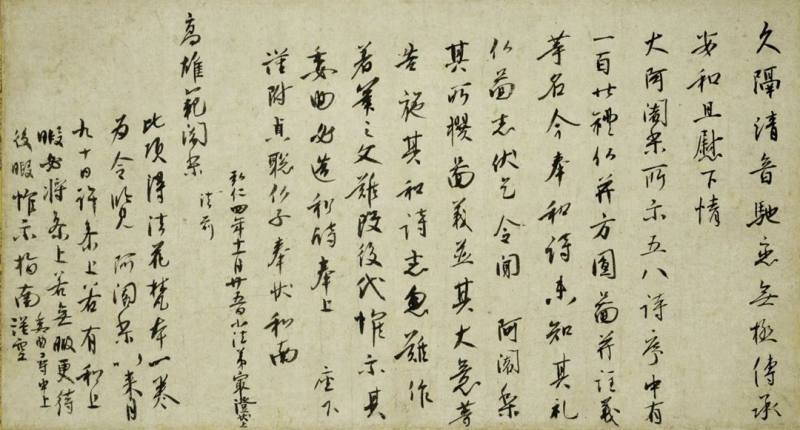 久隔清音馳恋無極傳承
安和且慰下情
大阿闍梨所示五八詩序中有
一百廿禮仏幷方圓圖幷註義
等名今奉和詩未知其礼
仏圖者伏乞令聞 阿闍梨
其所撰圖義並其大意等
告施其和詩者忽難作
著筆之文難改後代惟示其
委曲必造和詩奉上 座下
謹附貞聡仏子奉状和南
弘仁四年十一月廿五日小法弟最澄状上
高雄範闍梨 法前
此頃得法花梵本一巻
為令覧 阿闍梨以来月
九十日許参上若有和上
暇必将参上若無暇更待
後暇惟示指南
謹空